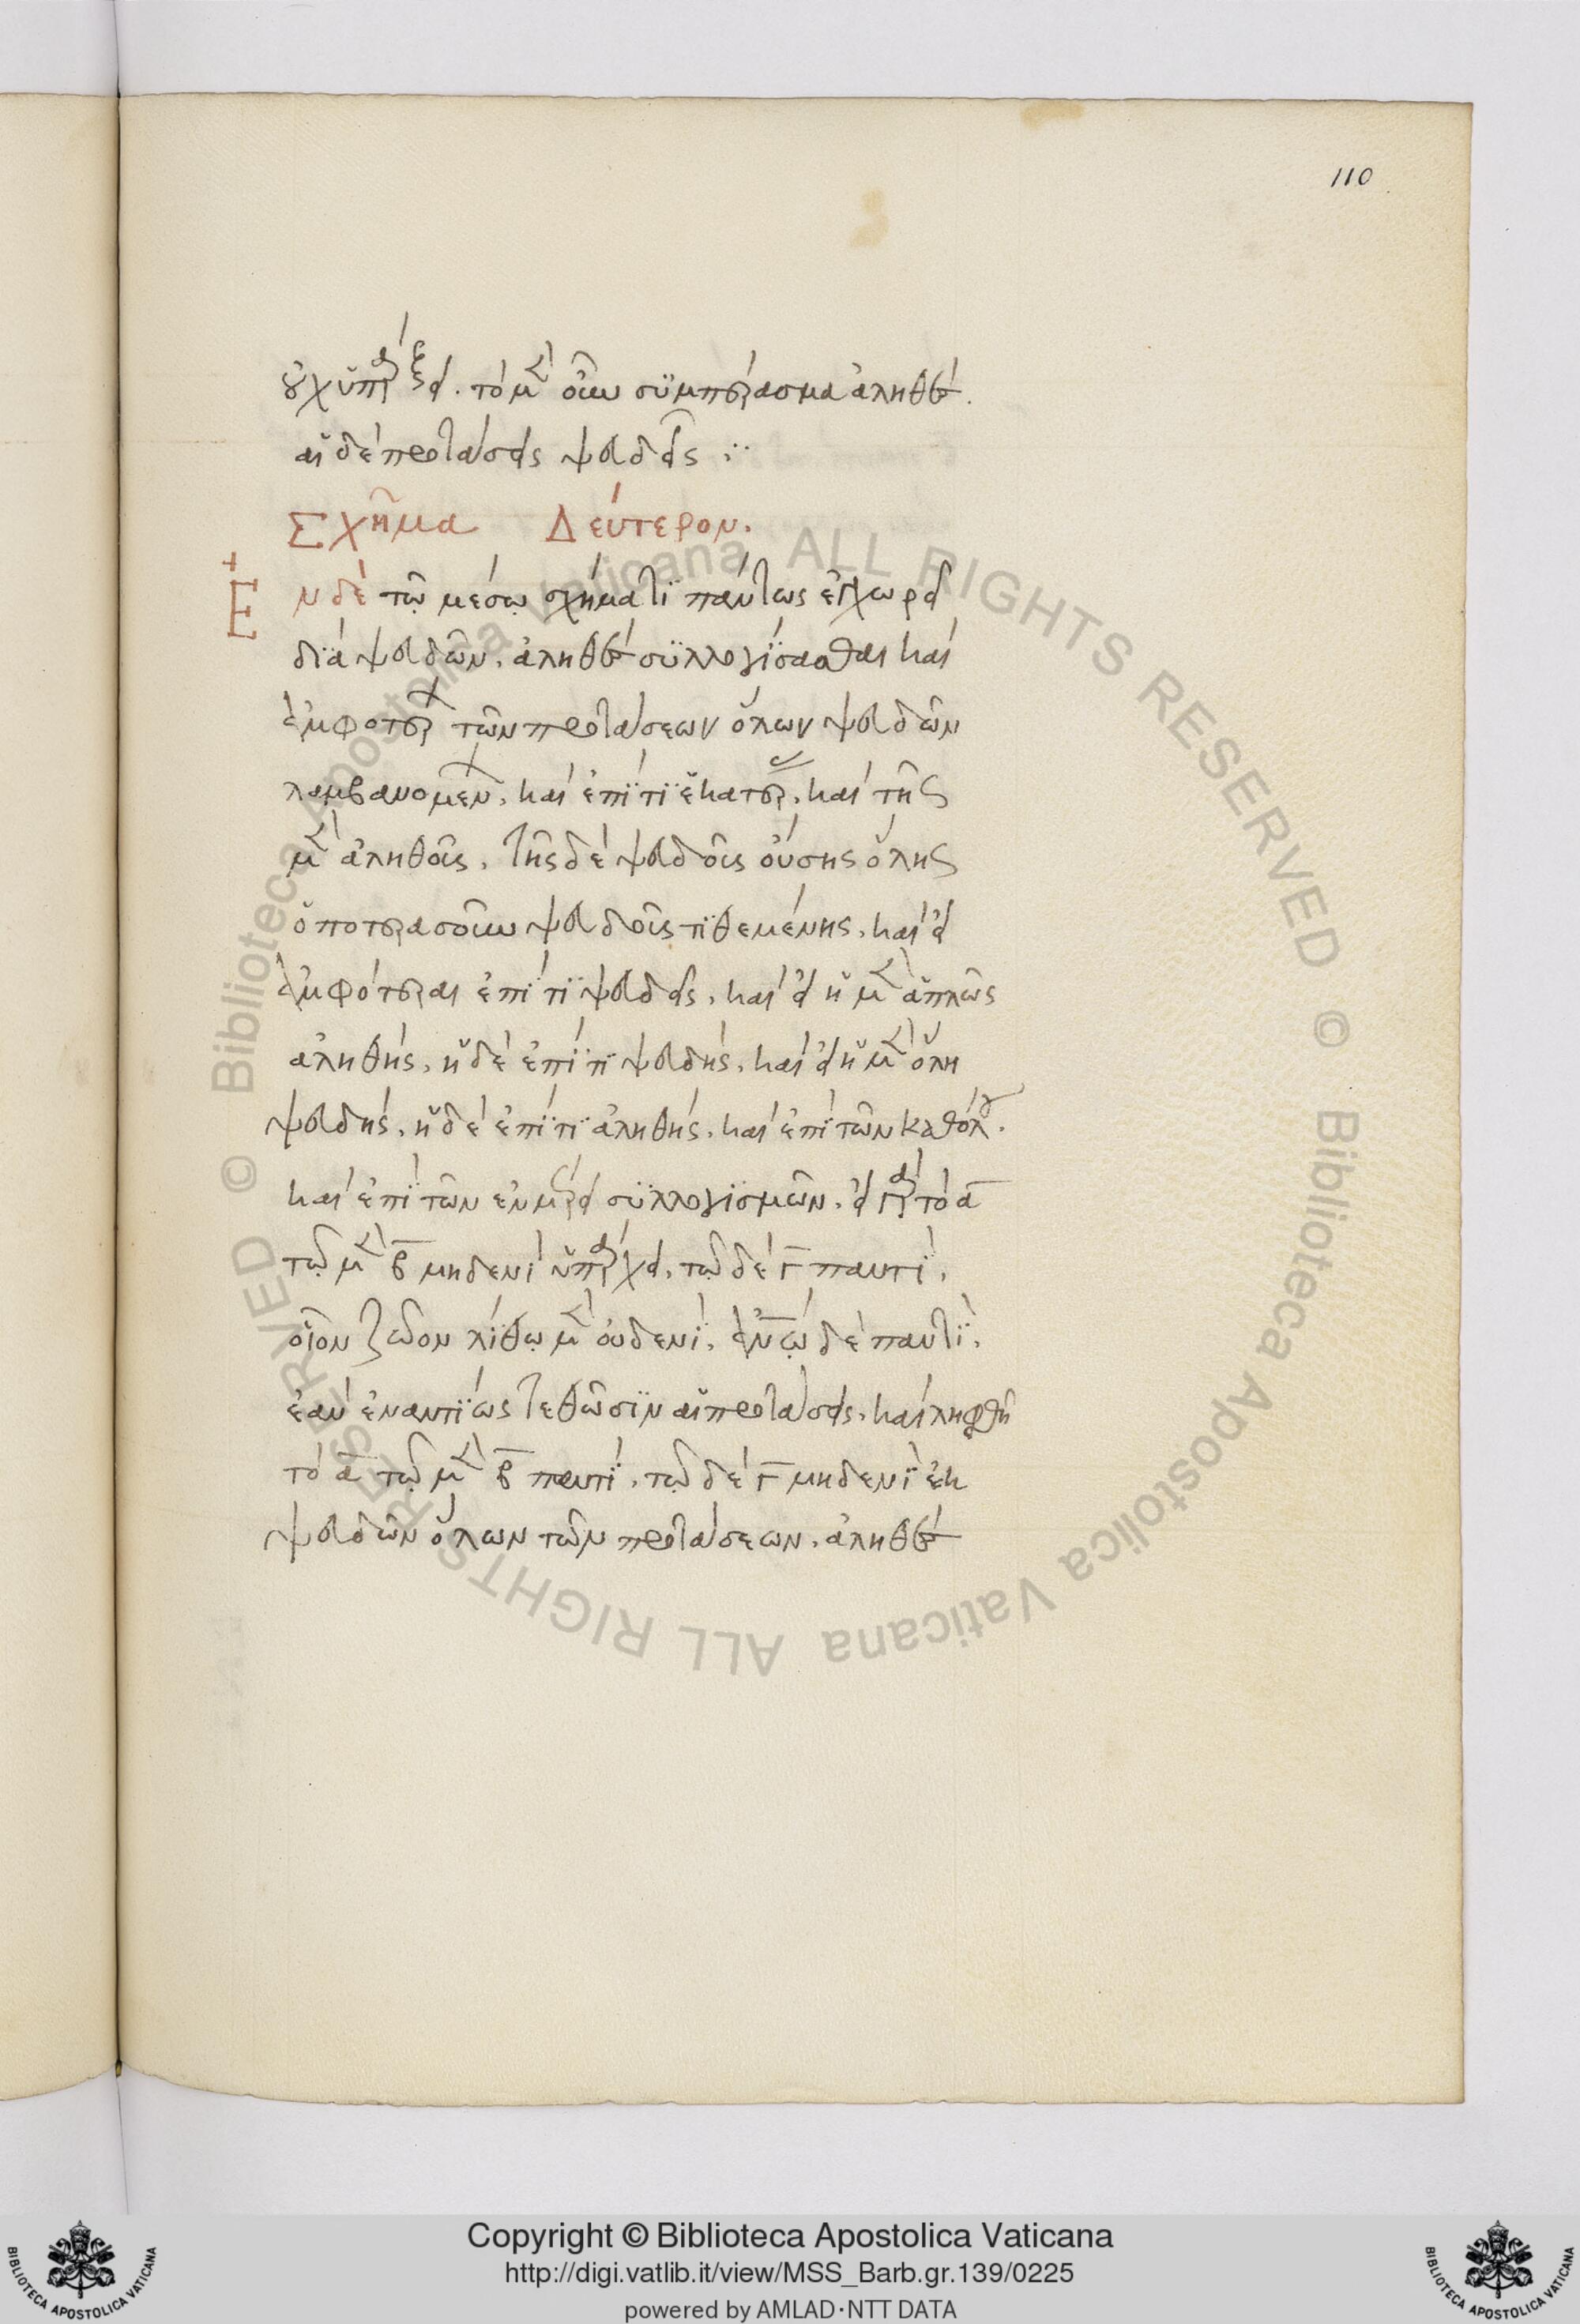 110
οὐχ ὑπάρξει. τὸ μὲν οὖν συμπέρασμα ἀληθὲς.
αἱ δὲ προτάσεις ψευδεῖς :
Σχῆμα Δεύτερον.
Ἐν δὲ τῷ μέσῳ σχήματι πάντως ἐγχωρεῖ
διὰ ψευδῶν. ἀληθὲς συλλογίσασθαι καὶ
ἀμφοτέρων τῶν προτάσεων ὅλων ψευδῶν
λαμβανομένων. καὶ ἐπί τι ἑκατέρας. καὶ τῆς
μὲν ἀληθοῦς. τῆς δὲ ψευδοῦς οὔσης ὅλης
ὁποτερασοῦν ψευδοῦς τιθεμένης. καὶ εἰ
ἀμφότεραι ἐπί τι ψευδεῖς. καὶ εἰ ἡ μὲν ἁπλῶς
ἀληθὴς. ἡ δὲ ἐπί τι ψευδής. καὶ εἰ ἡ μὲν ὅλη
ψευδής. ἡ δὲ ἐπί τι ἀληθής. καὶ ἐπὶ τῶν καθόλου.
καὶ ἐπὶ τῶν ἐν μέρει συλλογισμῶν. εἰ γὰρ τὸ α
τῷ μὲν β μηδενὶ ὑπάρχει. τῷ δὲ γ παντί.
οἷον ζῶον λίθῳ μὲν οὐδενί. ἀνῳ δὲ παντί.
ἐὰν ἐναντίως τεθῶσιν αἱ προτάσεις. καὶ ληφθῇ
τὸ α τῷ μὲν β παντί. τῷ δὲ γ μηδενὶ ἐκ
ψευδῶν ὅλων τῶν προτάσεων. ἀληθὲς
© Biblioteca Apostolica Vaticana ALL RIGHTS RESERVED © Biblioteca Apostolica Vaticana ALL RIGHTS RESERVED
Copyright © Biblioteca Apostolica Vaticana
http://digi.vatlib.it/view/MSS_Barb.gr.139/0225
powered by AMLAD·NTT DATA
BIBLIOTECA APOSTOLICA VATICANA
BIBLIOTECA APOSTOLICA VATICANA